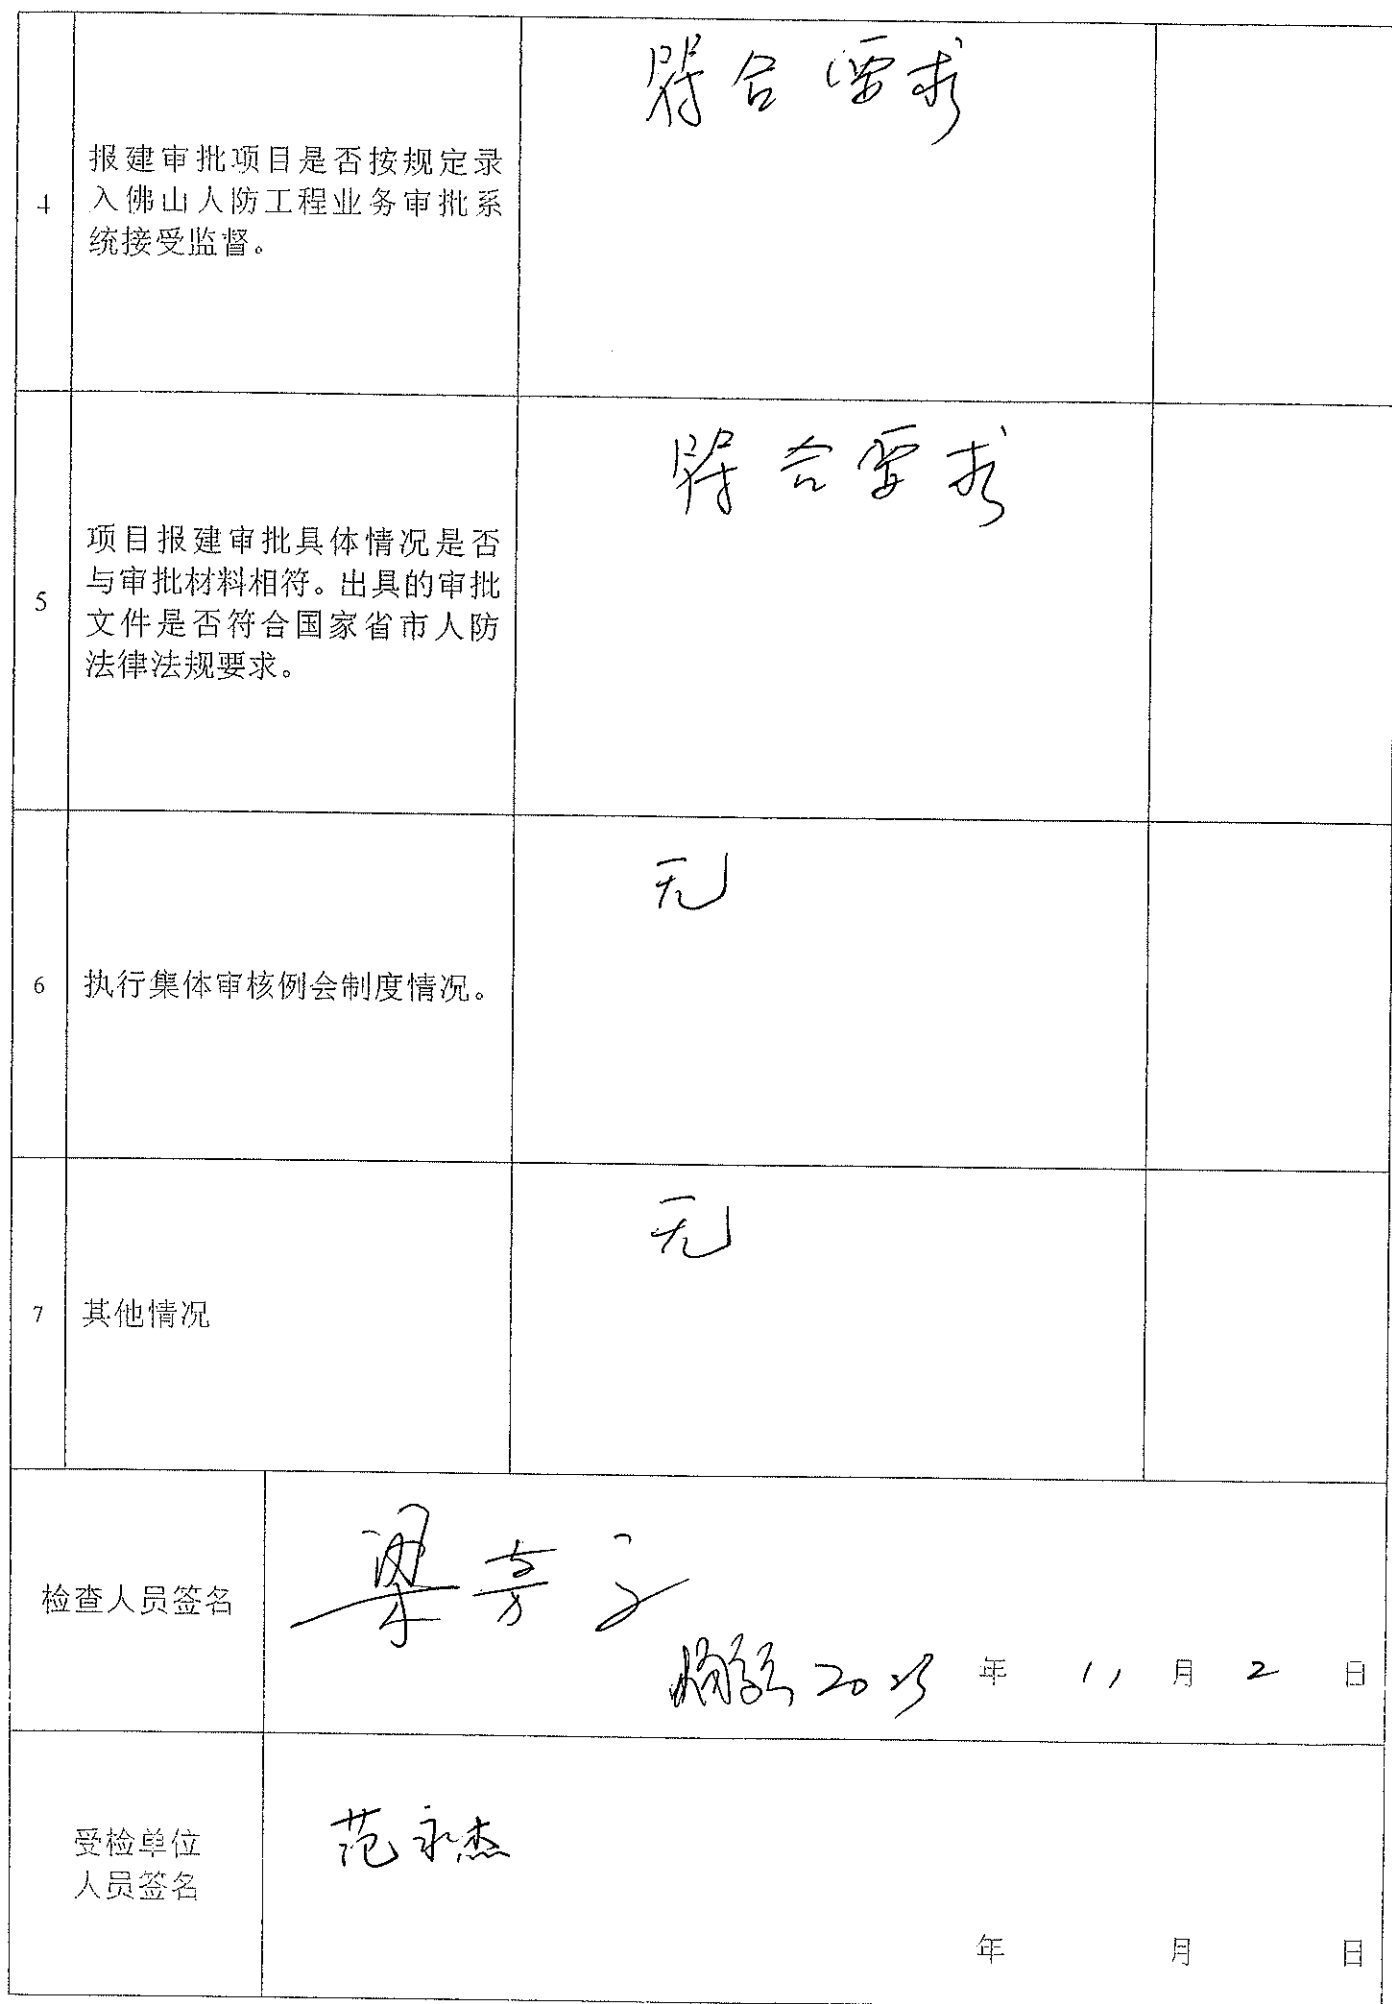 符合要求
报建审批项目是否按规定录
4
入佛山人防工程业务审批系
统接受监督。
符合要求
项目报建审批具体情况是否
与审批材料相符。出具的审批
5
文件是否符合国家省市人防
法律法规要求。
无
6 执行集体审核例会制度情况。
无
7 其他情况
检查人员签名 梁
年 11 月 2 日
受检单位 范永杰
人员签名
年 月 日